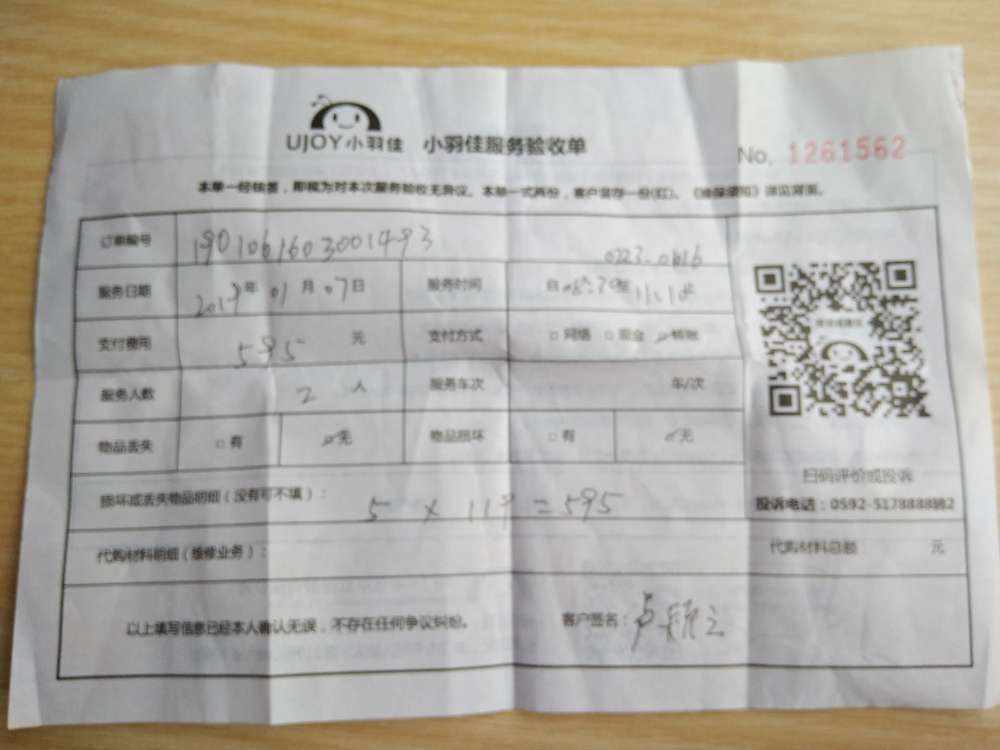 UJOY小羽佳 小羽佳服务验收单
No. 1261562
本单一经核签,即视为对本次服务验收无异议。本单一式两份,客户留存一份(红)。《维保须知》详见背面。
订单编号 1901061603001493
服务日期 2019年01月07日 服务时间 自08:30至
支付费用 595 元 支付方式 □网络 □现金 ☑转账
服务人数 2 人 服务车次 车/次
物品丢失 □有 ☑无 物品损坏 □有 ☑无
扫码评价或投诉
损坏或丢失物品明细(没有可不填): 5 × 119 = 595
投诉电话:0592-5178888转2
代购材料明细(维修业务): 代购材料总额 元
以上填写信息已经本人确认无误,不存在任何争议纠纷。 客户签名:卢